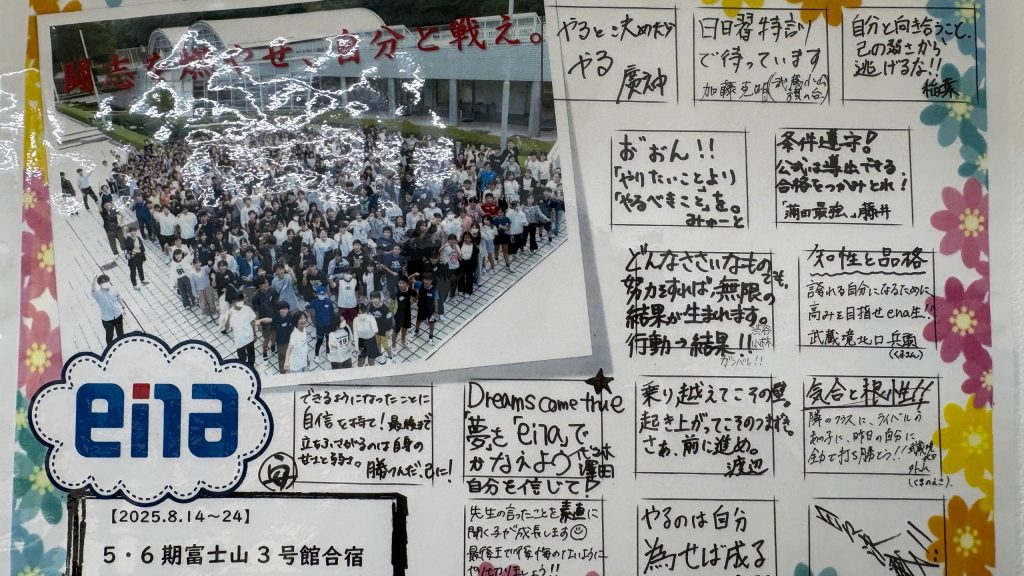 闘志を燃やせ、自分と戦え。
やると決めたら
やる
廣神
日日習特訓
で待っています
加藤
自分と向き合うこと、
己の弱さから
逃げるな!!
稲葉
おおん!!
「やりたいことより
「やるべきこと」を。
みゅーと
条件遵守!
公式は導出できる、
合格をつかみとれ!
「蒲田最強、」藤井
どんなささいなもの
努力をすれば、無限の
結果が生まれます。
行動→結果!!
ガンバレ!!
知性と品格
誇れる自分になるために
高みを目指せena生!!
武蔵境北口 兵頭
ena
できるようになったことに
自信を持て!最後まで
立ちふさがるのは自身の
甘えと弱さ。
勝つんだ、己に!
Dreams come true
「夢」を「eina」で
かなえよう
濱田
自分を信じて!
乗り越えてこその壁。
起き上がってこそのつまずき。
さぁ、前に進め。
渡辺
気合と根性!!
隣のクラスに、ライバルの
あの子に、昨日の自分に
全力で打ち勝とう!!
【2025.8.14～24】
5・6期富士山3号館合宿
先生の言ったことを素直に
聞く子が成長します
最後まで後悔のないように
やり切りましょう!!
やるのは自分
為せば成る